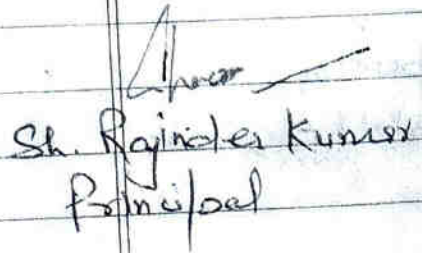 Sh. Rajinder Kumar
Principal